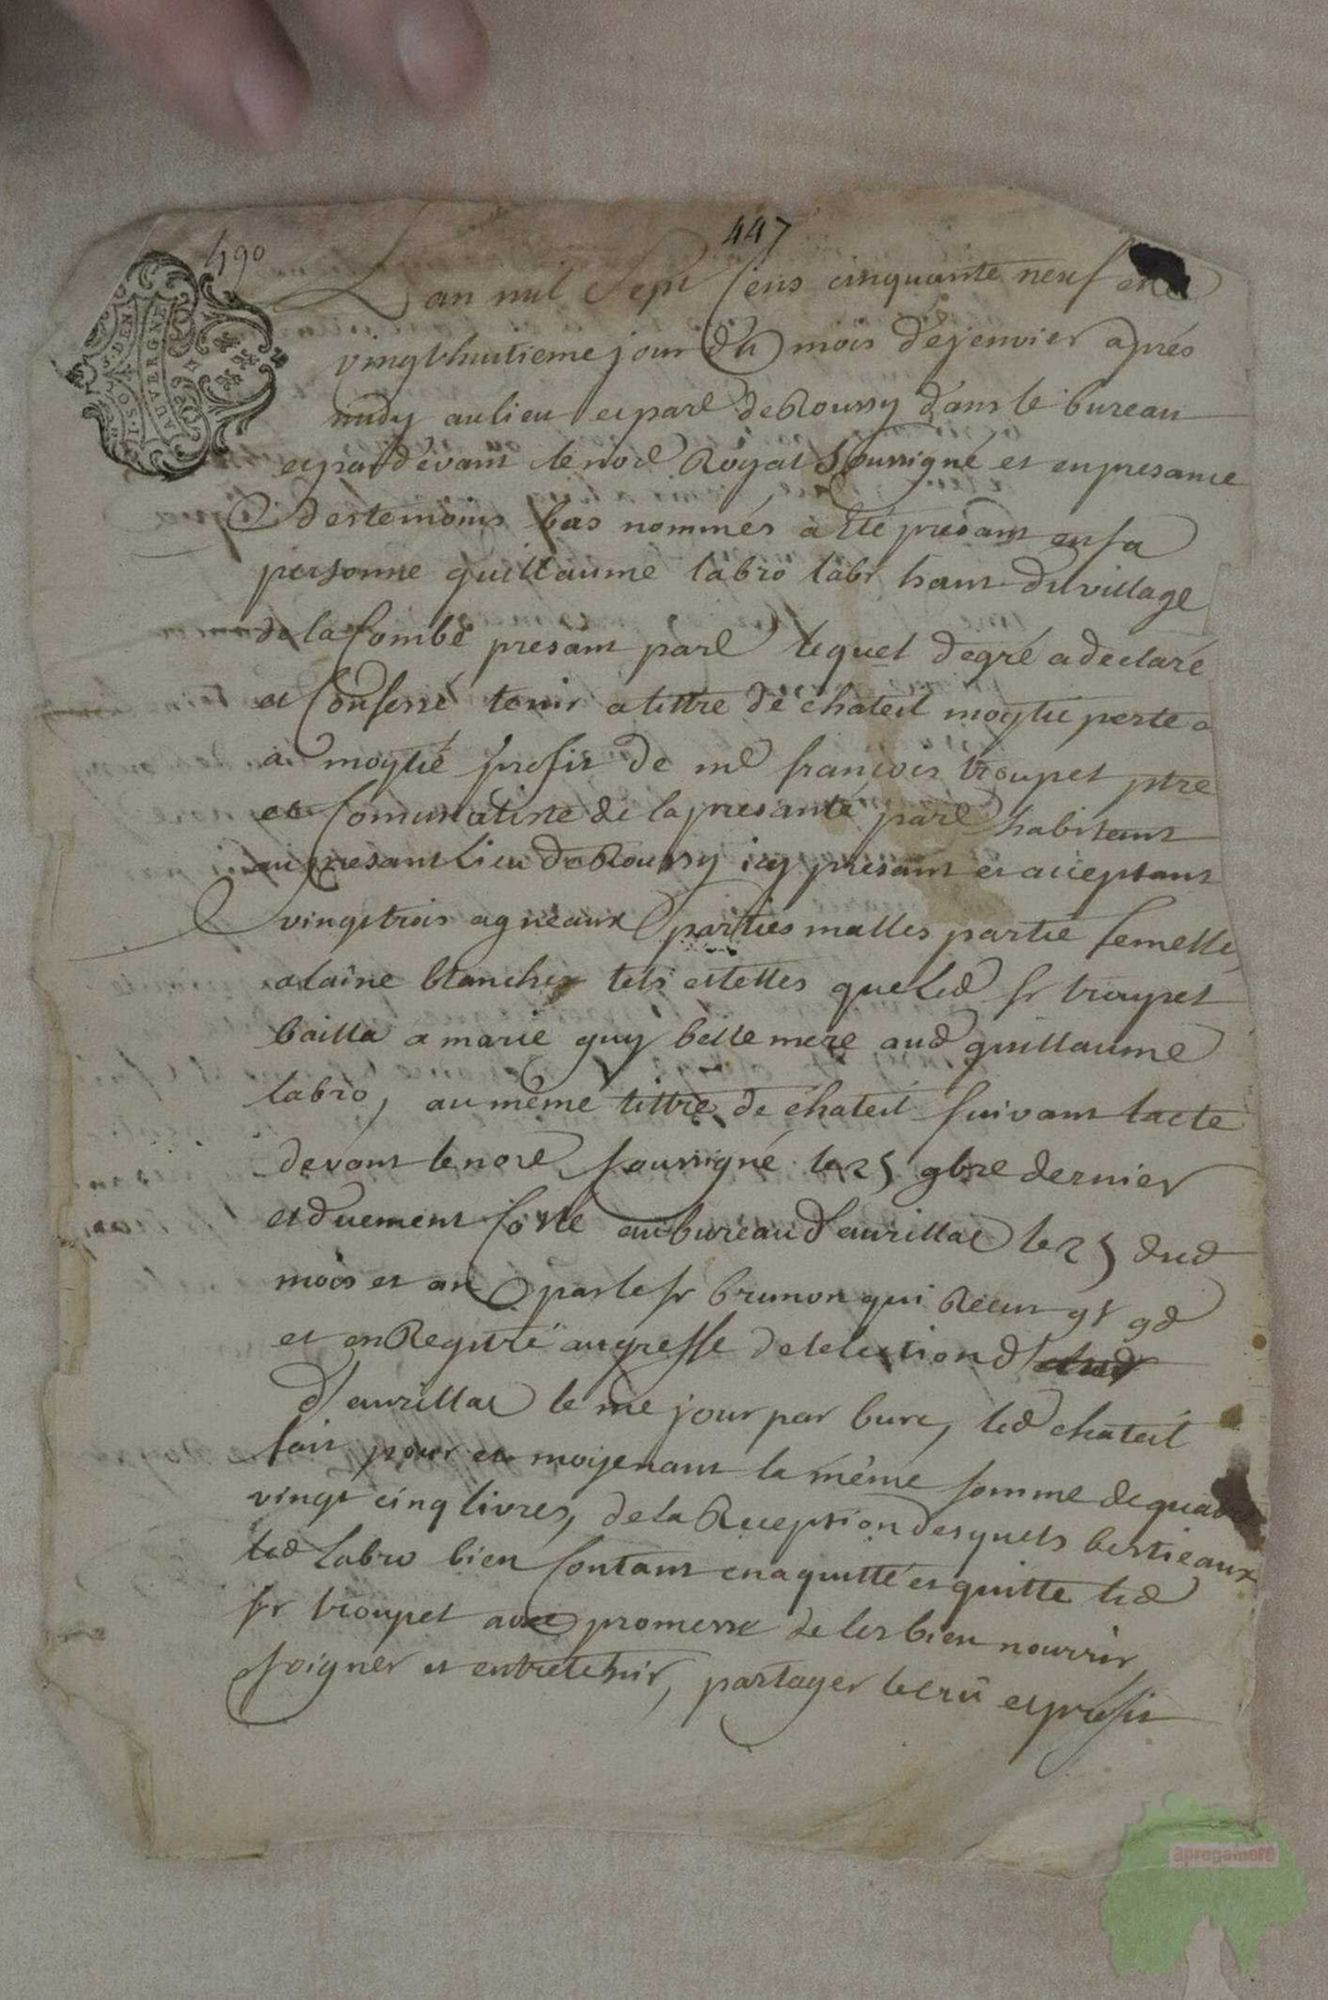 447
490
AUVERGNE
I.SOL.
Lan mil sept cens cinquante neuf et le
vingt huitieme jour du mois dejenvier apres
midy aulieu et parl deRoussy dans le bureau
et par devant le nore Royal soussigné et en presance
des temoins bas nommés a été presant en sa
personne guillaume labro labr hant du village
de la Combe presant parl lequel degré a declaré
et Confessé tenir a tittre de chateil moytié perte a
a moytié profit de me françois troupel ptre
et Comunaliste de la presante parl habitant
au presant lieu deRoussy icy presant et acceptant
vingt trois agneaux parties malles partie femelle,
a laine blanches tels et telles que led sr troupel
bailla a marie guy belle mere aud guillaume
labro, au même tittre de chateil suivant lacte
devant le nore soussigné le 25 9bre dernier
et duement colle au bureau d'aurillac le 25 dud
mois et an par le sr brunon qui Recut
et enRegitré au greffe de lelection d
d'aurillac le me jour par bure, led chateil
fait pour et moyenant la même somme de quatre
vingt cinq livres, de la Reception desquels bestieaux
led labro bien contant en a quitté et quitte led
sr troupel avec promesse de les bien nourrir,
soigner et entretenir, partager le crû et profit
apregamere